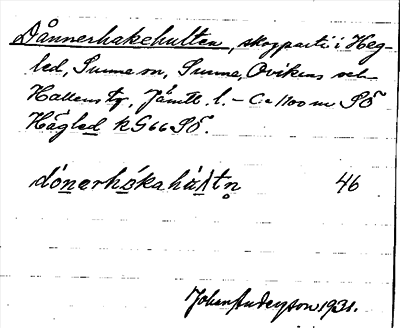 Dånnerhakehulten, skogparti i Heg-
led, Sunne sn, Sunne, Ovikens och
Hallens tg, Jämtl. l. – Ca 1100 m SÖ
Hägled kG66SÖ.
dónerhòkahùltn 46
Johan Anderson 1931.